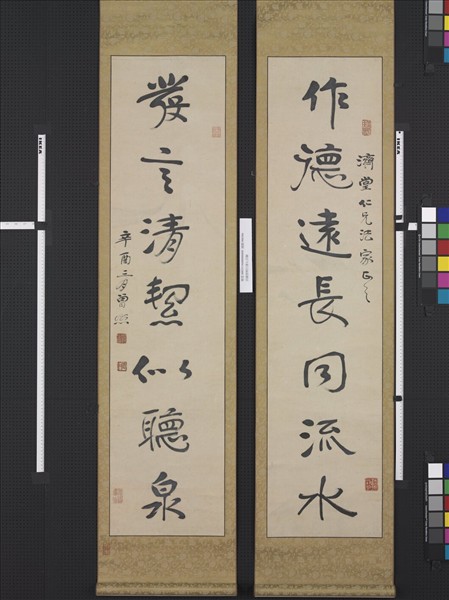 作德遠長同流水
濟堂仁兄法家正之
發言清絜似聽泉
辛酉三月曾熙
IKEA
IKEA